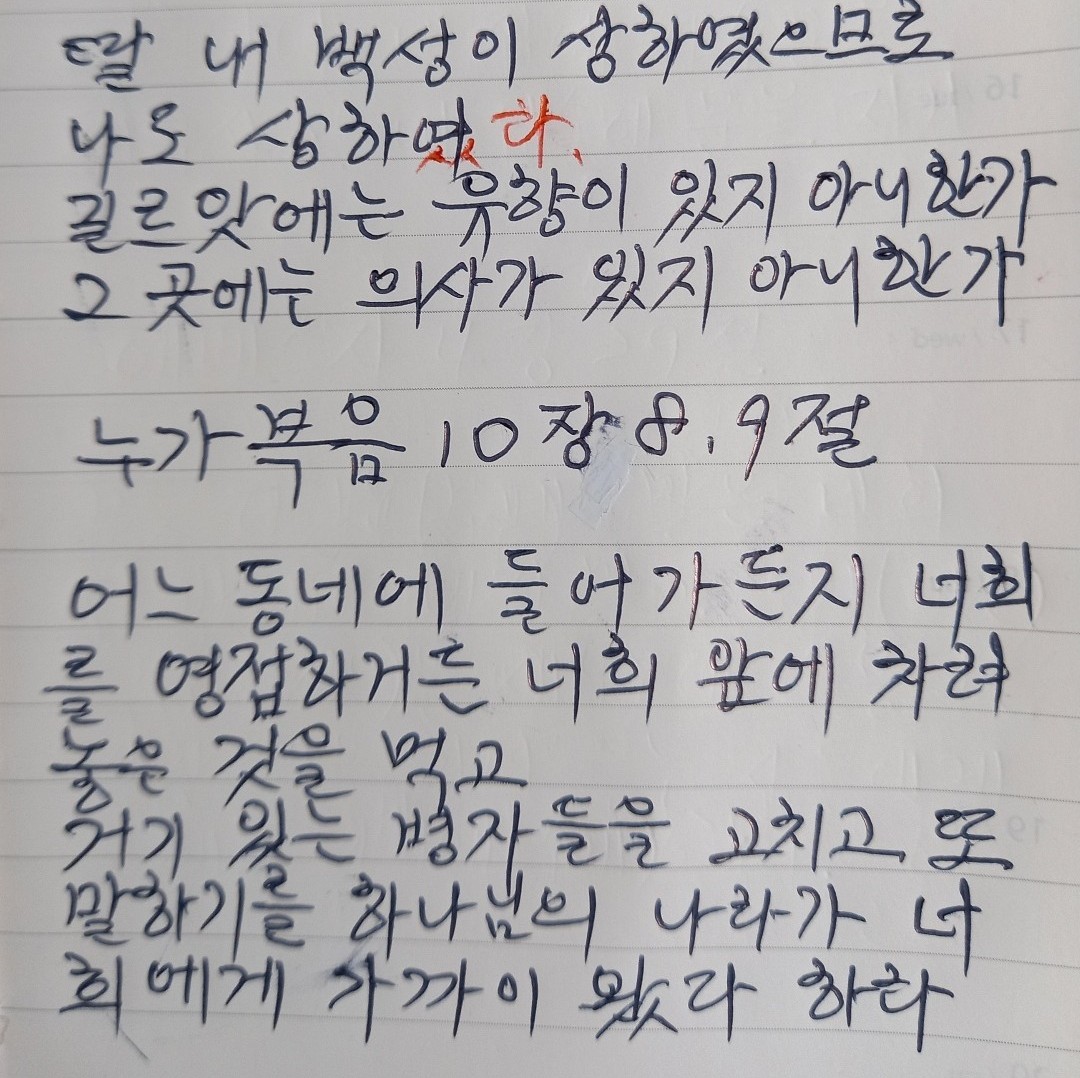 딸 내 백성이 상하였으므로
나도 상하였다.
길르앗에는 유향이 있지 아니한가
그 곳에는 의사가 있지 아니한가
누가복음 10장 8.9절
어느 동네에 들어가든지 너희
를 영접하거든 너희 앞에 차려
놓은 것을 먹고
거기 있는 병자들을 고치고 또
말하기를 하나님의 나라가 너
희에게 가까이 왔다 하라